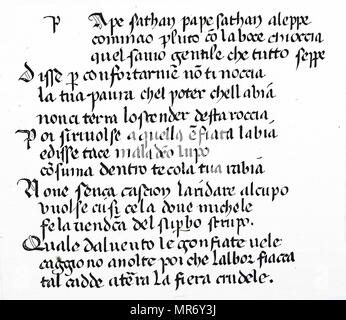 P Ape sathan pape sathan aleppe
cominao pluto cō la boce chioccia
quel savio gentile che tutto seppe
Disse p confortarme nō ti noccia
la tua paura chel poter chell abia
non ci terra lo scender desta roccia
Poi si rivolse a quella ēfiata labia
e disse tace maladeo lupo
cōsuma dentro te co la tua rabia
None senca casion landare al cupo
vuolse cusi ce la dove michele
fe la vendeta del supbo strupo.
Quale dal vento le gonfiate vele
caggiono a volte poi che lalbor fiacca
tal cadde a tēra la fiera crudele.
alamy
Image ID: MR6Y3J
www.alamy.com